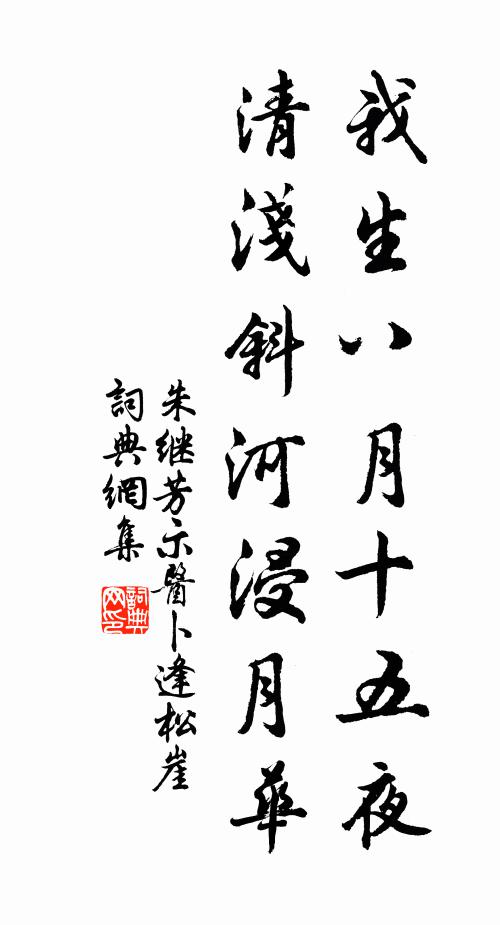 我生八月十五夜
清淺斜河浸月華
朱继芳示醫卜逢松崖
詞典網集
詞典网印